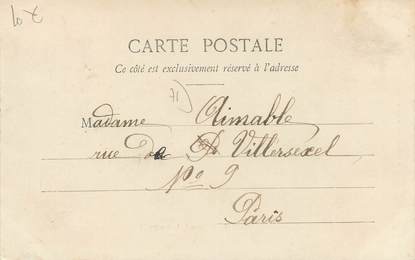 10 €
CARTE POSTALE
Ce côté est exclusivement réservé à l'adresse
71)
Madame Aimable
rue De Villersexel
No 9
Paris